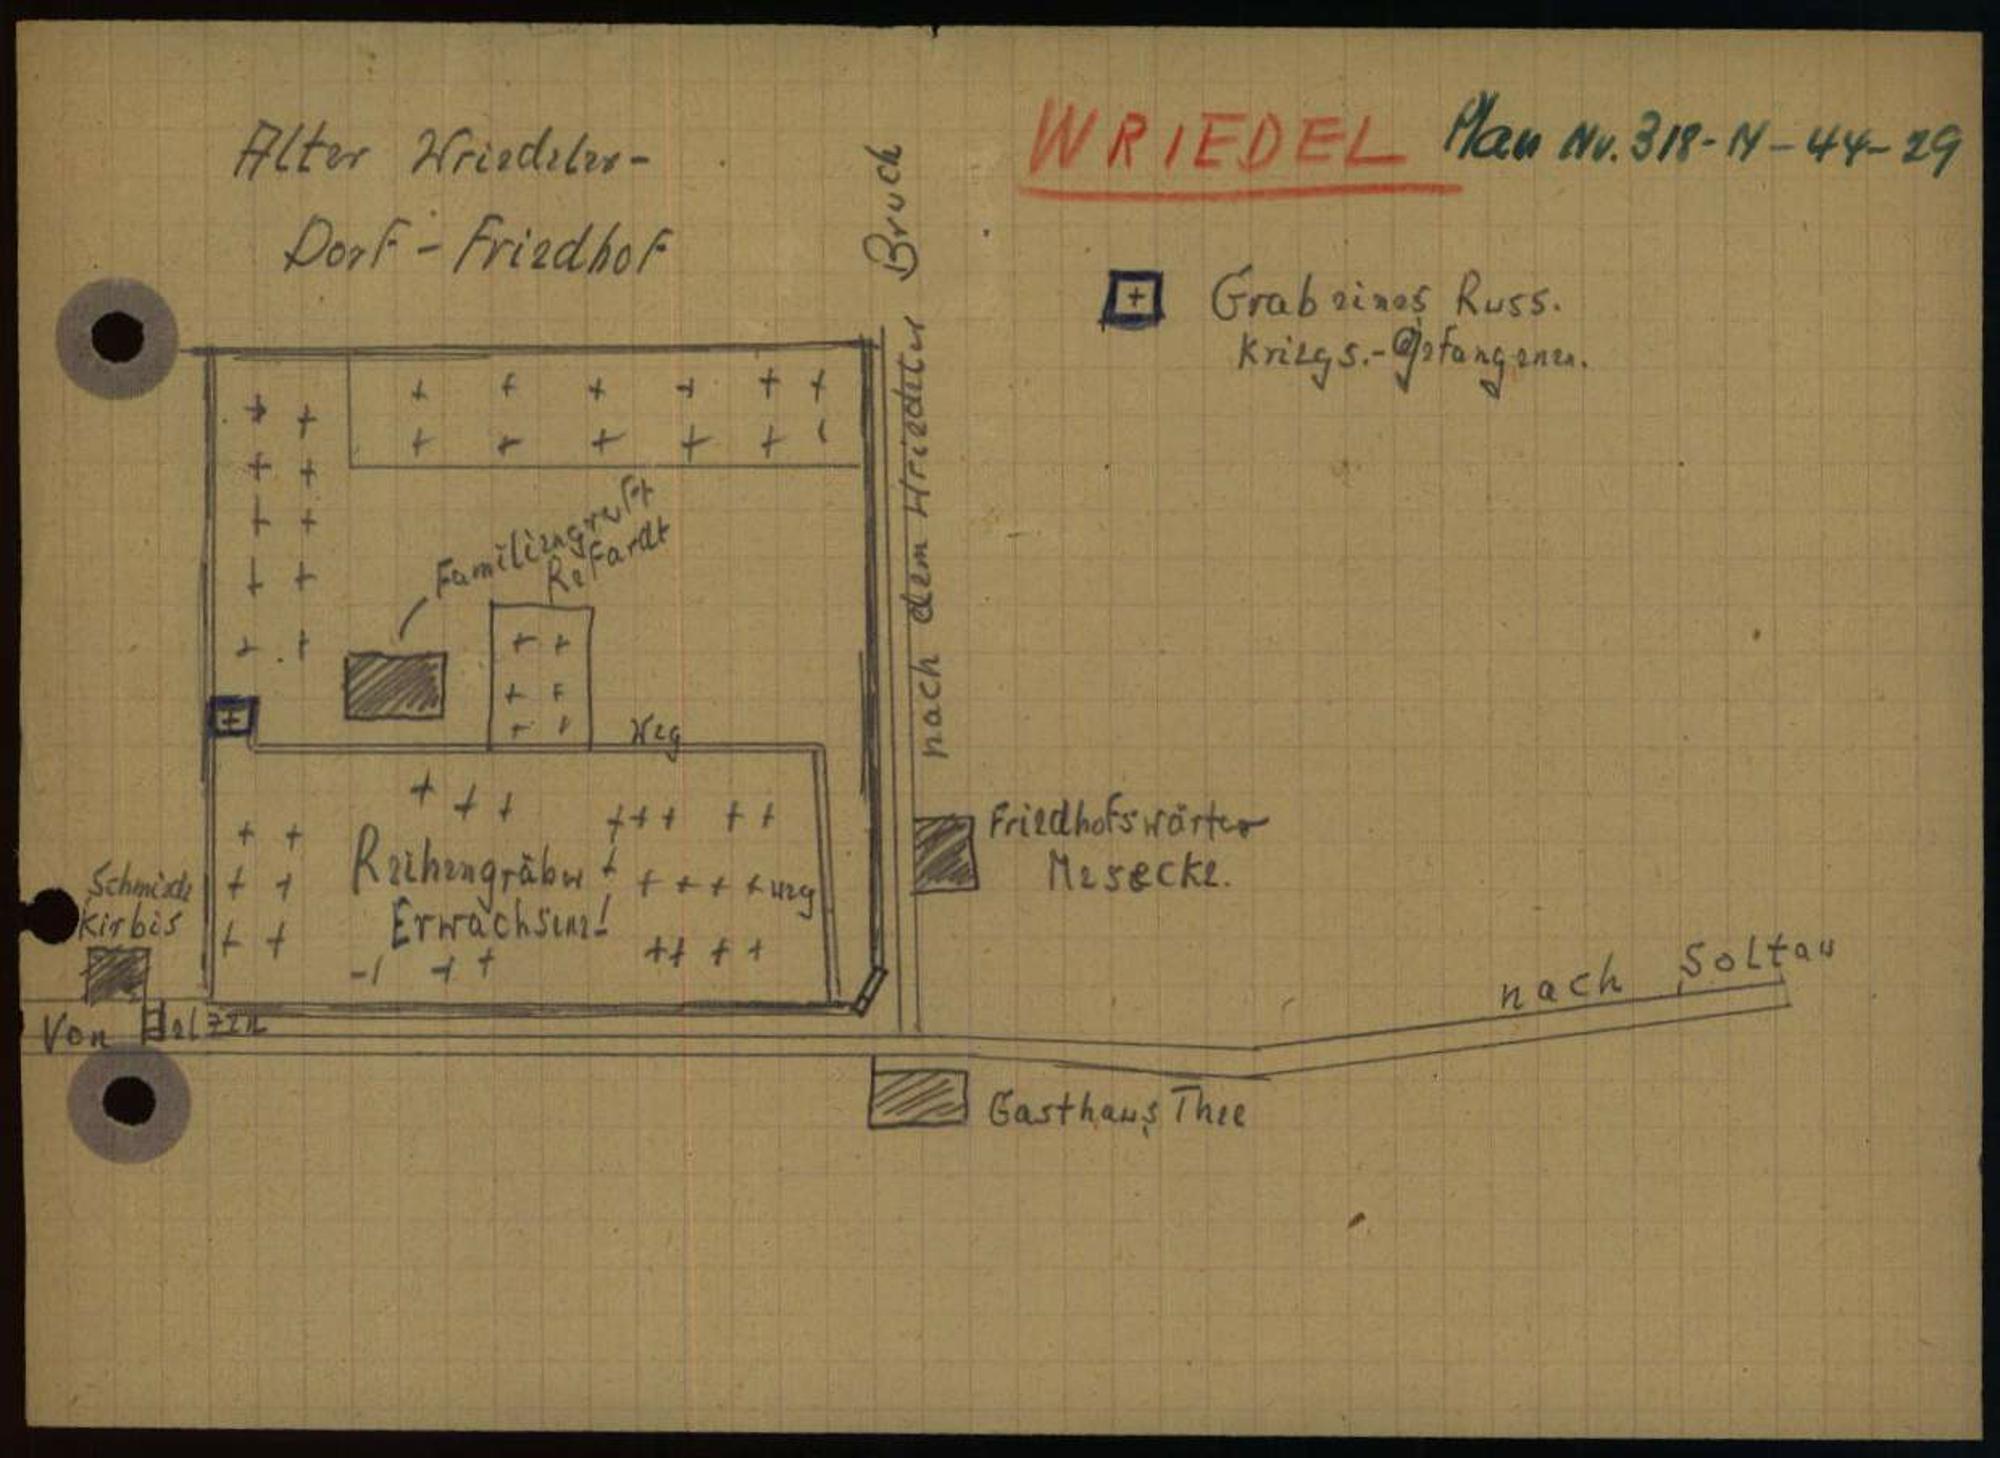 Alter Wriedeler-
Dorf-Friedhof
WRIEDEL Plan Nr. 318-N-44-29
Grab eines Russ.
Kriegs.-Gefangenen.
nach dem Wriedeler Bruch
Familiengruft
Refardt
Weg
Friedhofswärter
Mesecke.
Reihengräber
Erwachsene!
weg
Schmiede
Kirbis
Von Uelzen
nach Soltau
Gasthaus Thee